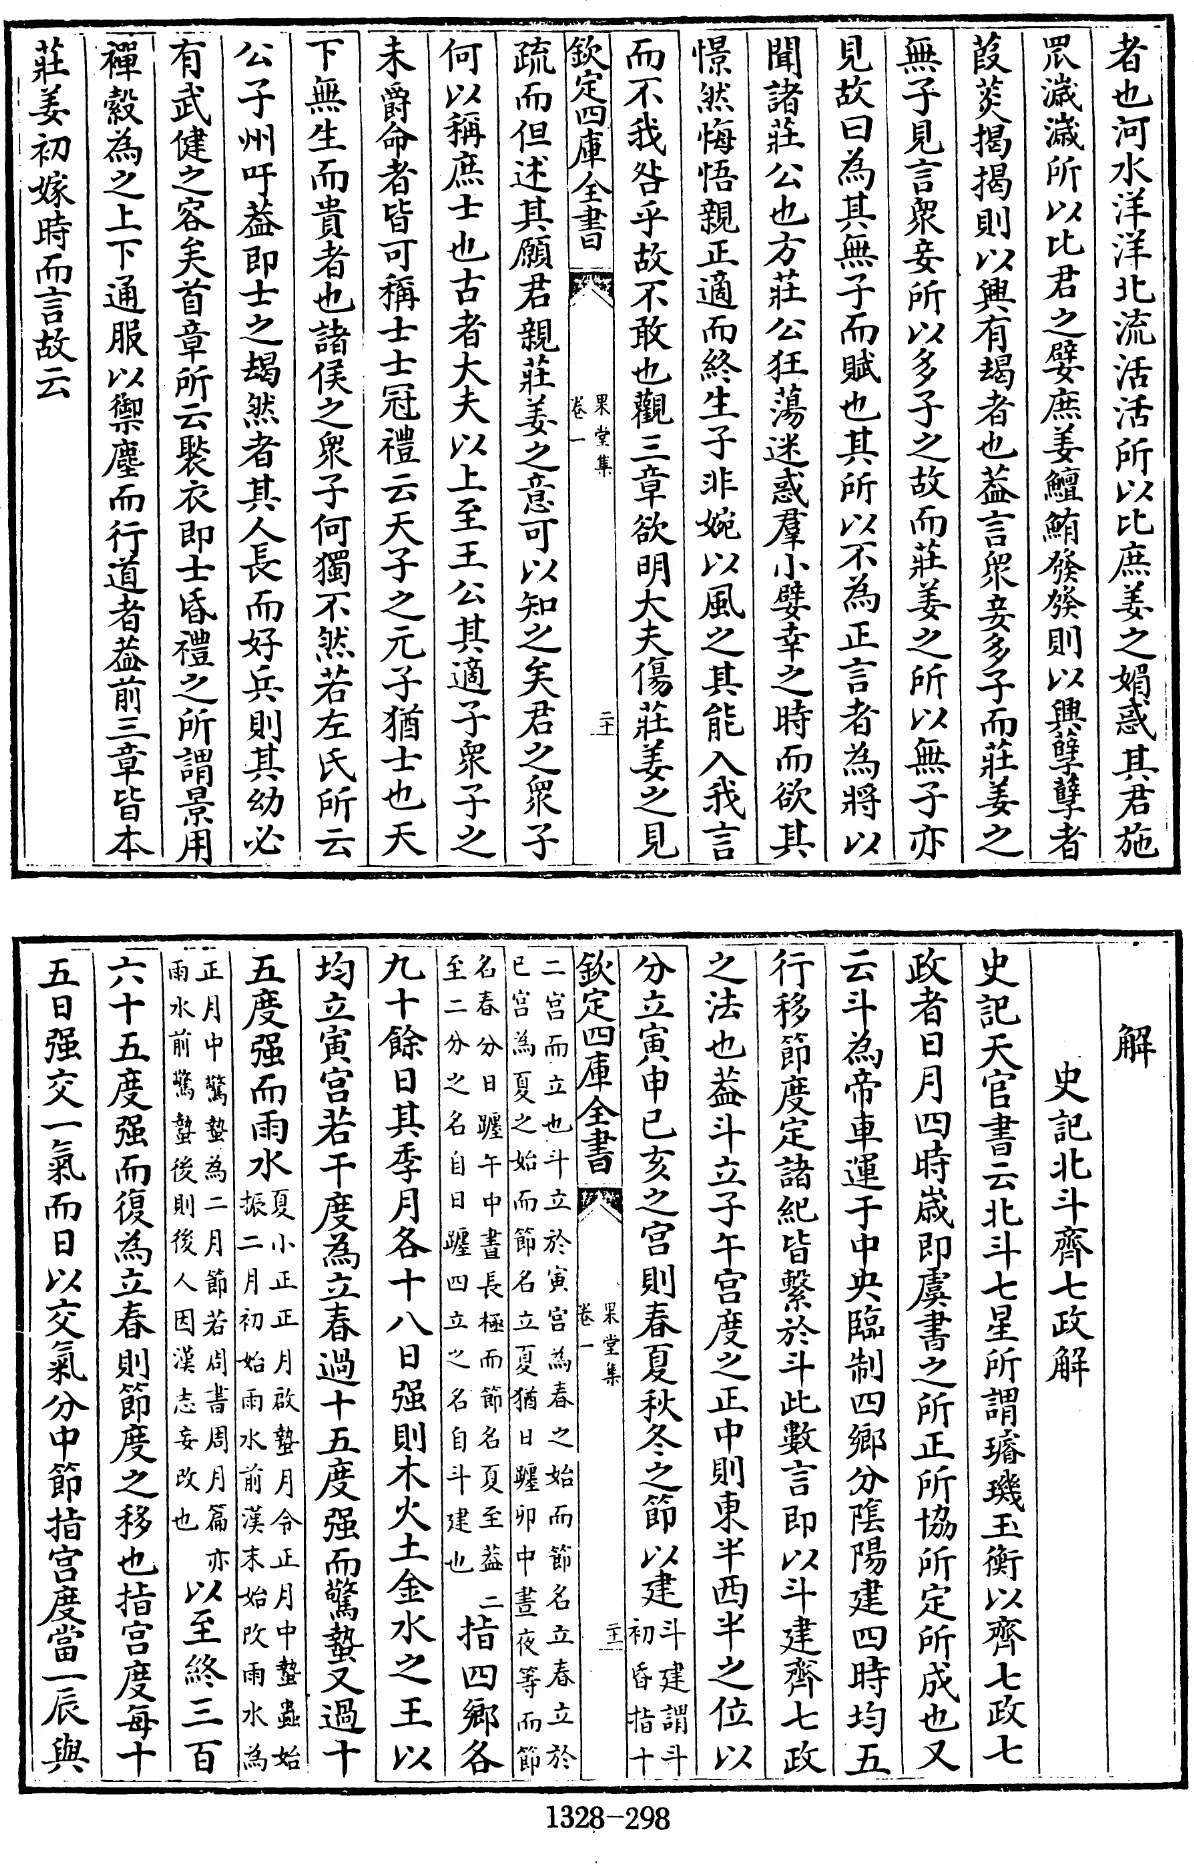 者也河水洋洋北流活活所以比庶姜之媚惑其君施
罛濊濊所以比君之嬖庶姜鱣鮪發發則以興孽孽者
葭菼揭揭則以興有朅者也葢言衆妾多子而莊姜之
無子見言衆妾所以多子之故而莊姜之所以無子亦
見故曰為其無子而賦也其所以不為正言者為將以
聞諸莊公也方莊公狂蕩迷惑羣小嬖幸之時而欲其
憬然悔悟親正適而終生子非婉以風之其能入我言
而不我咎乎故不敢也觀三章欲明大夫傷莊姜之見
欽定四庫全書
果堂集
卷一
二十
疏而但述其願君親莊姜之意可以知之矣君之衆子
何以稱庶士也古者大夫以上至王公其適子衆子之
未爵命者皆可稱士士冠禮云天子之元子猶士也天
下無生而貴者也諸侯之衆子何獨不然若左氏所云
公子州吁葢即士之朅然者其人長而好兵則其幼必
有武健之容矣首章所云褧衣即士昏禮之所謂景用
襌縠為之上下通服以禦塵而行道者葢前三章皆本
莊姜初嫁時而言故云
解
史記北斗齊七政解
史記天官書云北斗七星所謂璿璣玉衡以齊七政七
政者日月四時嵗即虞書之所正所協所定所成也又
云斗為帝車運于中央臨制四鄉分陰陽建四時均五
行移節度定諸紀皆繫於斗此數言即以斗建齊七政
之法也葢斗立子午宮度之正中則東半西半之位以
分立寅申已亥之宮則春夏秋冬之節以建斗建謂斗
初昏指十
欽定四庫全書
果堂集
卷一
二十一
二宮而立也斗立於寅宮為春之始而節名立春立於
已宮為夏之始而節名立夏猶日躔卯中晝夜等而節
名春分日躔午中書長極而節名夏至葢二
至二分之名自日躔四立之名自斗建也指四鄉各
九十餘日其季月各十八日强則木火土金水之王以
均立寅宮若干度為立春過十五度强而驚蟄又過十
五度强而雨水夏小正正月啟蟄月令正月中蟄蟲始
振二月初始雨水前漢末始改雨水為
正月中驚蟄為二月節若周書周月篇亦
雨水前驚蟄後則後人因漢志妄改也以至終三百
六十五度强而復為立春則節度之移也指宮度每十
五日强交一氣而日以交氣分中節指宮度當一辰與
1328-298